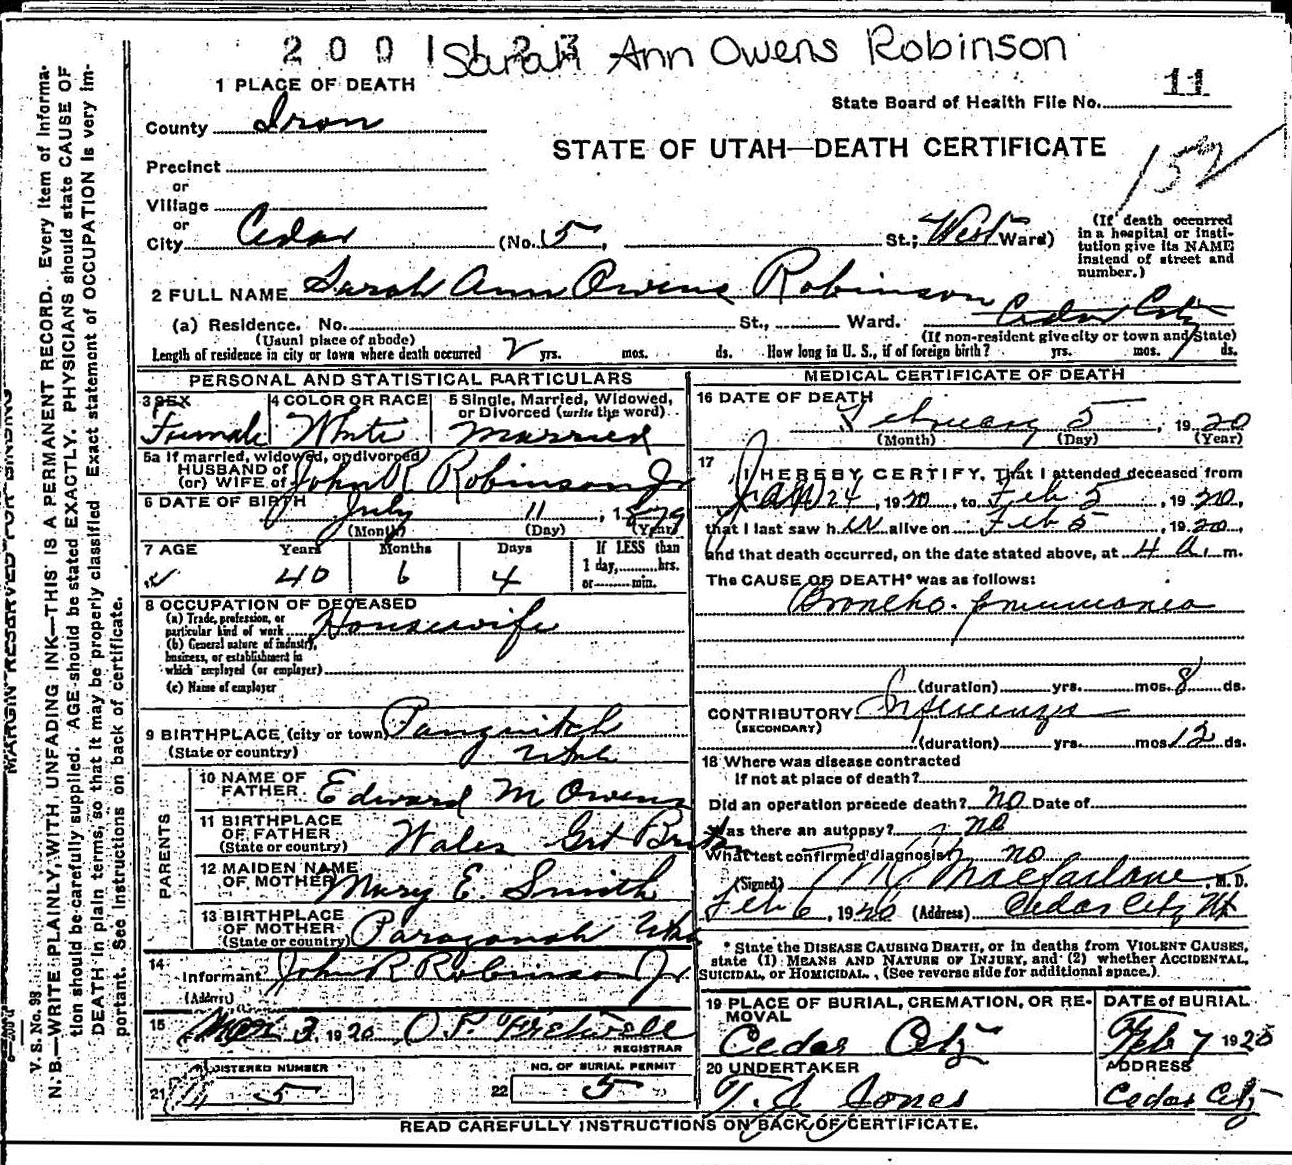 2 0 0 1 1 2 3 Sarah Ann Owens Robinson
1 PLACE OF DEATH
State Board of Health File No. 11
County Iron
STATE OF UTAH—DEATH CERTIFICATE
152
Precinct
or
Village
or
City Cedar (No. 5, St.; West Ward)
(If death occurred in a hospital or insti-
tution give its NAME
instead of street and
number.)
2 FULL NAME Sarah Ann Owens Robinson
(a) Residence. No. St., Ward. Cedar City
(Usual place of abode) (If non-resident give city or town and State)
Length of residence in city or town where death occurred yrs. mos. ds. How long in U. S., if of foreign birth? yrs. mos. ds.
PERSONAL AND STATISTICAL PARTICULARS
3 SEX 4 COLOR OR RACE 5 Single, Married, Widowed,
or Divorced (write the word)
Female White Married
5a If married, widowed, or divorced
HUSBAND of
(or) WIFE of John R Robinson Jr
6 DATE OF BIRTH July 11, 1879
(Month) (Day) (Year)
7 AGE Years Months Days If LESS than
1 day, hrs.
or min.
40 6 4
8 OCCUPATION OF DECEASED
(a) Trade, profession, or
particular kind of work Housewife
(b) General nature of industry,
business, or establishment in
which employed (or employer)
(c) Name of employer
9 BIRTHPLACE (city or town) Panguitch
(State or country) Utah
PARENTS
10 NAME OF
FATHER Edward M Owens
11 BIRTHPLACE
OF FATHER
(State or country) Wales Grt Briton
12 MAIDEN NAME
OF MOTHER Mary E. Smith
13 BIRTHPLACE
OF MOTHER
(State or country) Paragonah Utah
14
Informant John R Robinson Jr.
(Address)
15 Mar 3 1920 O P Fretwell
REGISTRAR
21 REGISTERED NUMBER 5
22 NO. OF BURIAL PERMIT 5
MEDICAL CERTIFICATE OF DEATH
16 DATE OF DEATH
February 5, 1920
(Month) (Day) (Year)
17 I HEREBY CERTIFY, That I attended deceased from
Jan 24, 1920, to Feb 5, 1920,
that I last saw her alive on Feb 5, 1920
and that death occurred, on the date stated above, at 4 a. m.
The CAUSE OF DEATH* was as follows:
Broncho-pneumonia
(duration) yrs. mos. 8 ds.
CONTRIBUTORY Influenza
(SECONDARY)
(duration) yrs. mos. 12 ds.
18 Where was disease contracted
if not at place of death?
Did an operation precede death? no Date of
Was there an autopsy? no
What test confirmed diagnosis? no
(Signed) M J Macfarlane, M. D.
Feb 6, 1920 (Address) Cedar City Ut
* State the DISEASE CAUSING DEATH, or in deaths from VIOLENT CAUSES,
state (1) MEANS AND NATURE OF INJURY, and (2) whether ACCIDENTAL,
SUICIDAL, or HOMICIDAL. (See reverse side for additional space.)
19 PLACE OF BURIAL, CREMATION, OR RE-
MOVAL
Cedar City
DATE of BURIAL
Feb 7 1920
20 UNDERTAKER
T. J. Jones
ADDRESS
Cedar City
READ CAREFULLY INSTRUCTIONS ON BACK OF CERTIFICATE.
MARGIN RESERVED FOR BINDING
V. S. No. 98
N. B.—WRITE PLAINLY, WITH UNFADING INK—THIS IS A PERMANENT RECORD. Every item of informa-
tion should be carefully supplied. AGE should be stated EXACTLY. PHYSICIANS should state CAUSE OF
DEATH in plain terms, so that it may be properly classified. Exact statement of OCCUPATION is very im-
portant. See instructions on back of certificate.